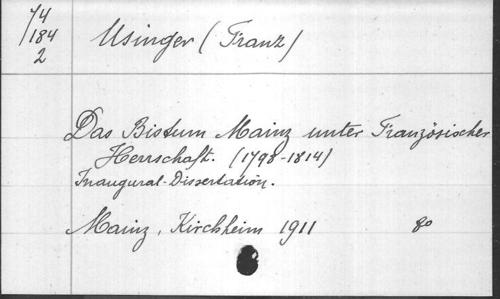 74
184
2
Usinger (Franz)
Das Bistum Mainz unter Französischer
Herrschaft. (1798-1814)
Inaugural-Dissertation.
Mainz, Kirchheim 1911 8o